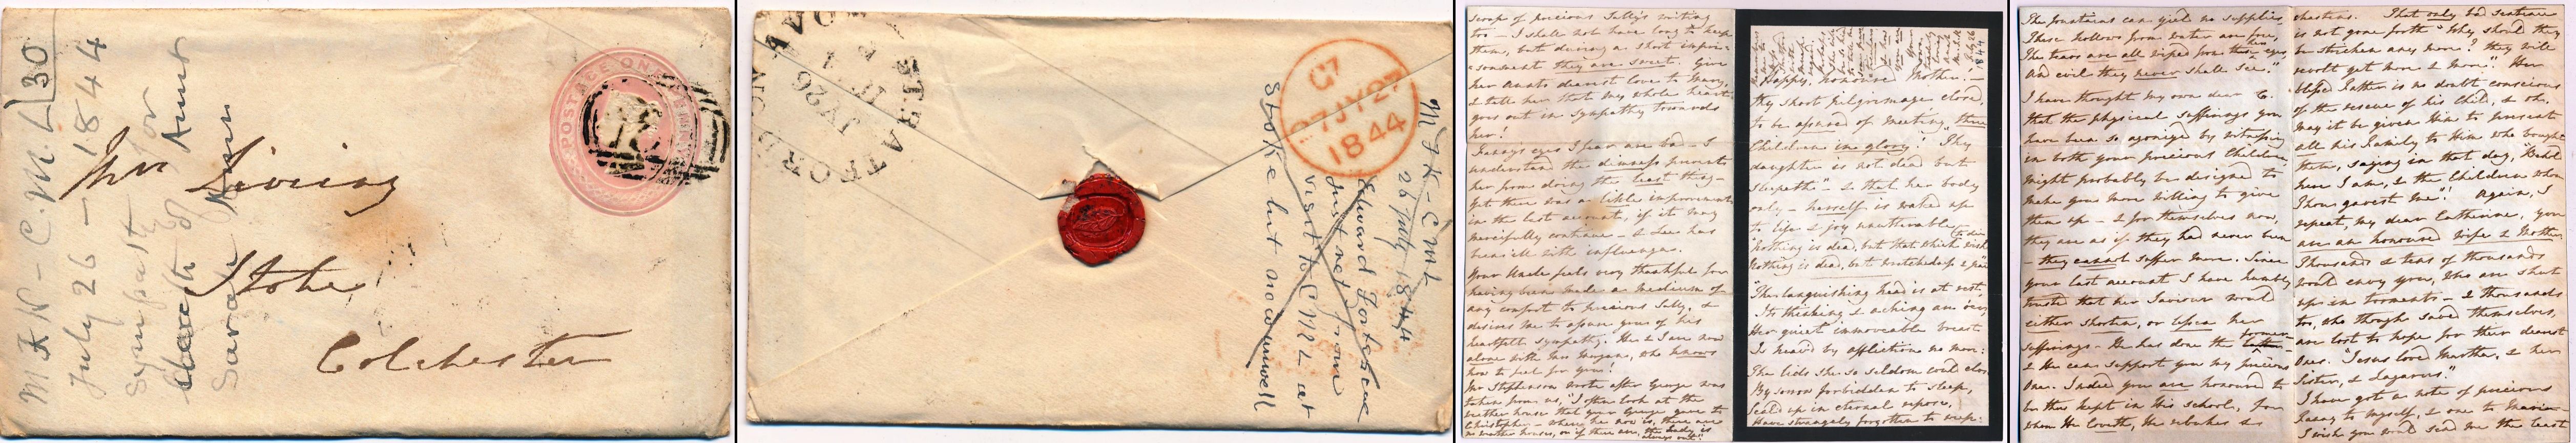 M F W - C. M. L 30
July 26 - 1844
Sympathy on
death of Aunt
Sarah Ann
POSTAGE ONE PENNY
Mrs Liveing
Stoke
Colchester
STRATFORD
JY 26
C7
27 JY 27
1844
26 July 1844
Edward Fortescue
just net from
visit to CML at
Stoke but now unwell
scrap of precious Sally's writing
too - I shall not have long to keep
them, but during a short impri-
sonment they are sweet. Give
her Aunts dearest love to Mary,
& tell her that my whole heart
goes out in sympathy towards
her!
Fanny's eyes I fear are bad - I
understand the dimness prevents
her from doing the least thing -
yet there was a little improvement
in the last account, if it may
mercifully continue -
been ill with influenza.
Your Uncle feels very thankful for
having been made a medium of
any comfort to precious Sally, &
desires me to assure you of his
heartfelt sympathy. He & I are now
alone with Mrs Morgan, who knows
how to feel for you!
Mr Stephenson wrote after George was
taken from us, "I often look at the
weather house that your George gave to
Christopher - where he now is, there are
no weather houses, or if there are, the lady is
always out."
Happy, honoured Mother! -
thy short pilgrimage closed,
to be assured of meeting three
Children in glory! "Thy
daughter is not dead but
sleepeth" - & that her body
only - herself is waked up
to life & joy unutterable
"Nothing is dead, but that which wished to die
Nothing is dead, but wretchedness & pain"
"The languishing head is at rest,
Its thinking & aching are o'er
Her quiet immoveable breast
Is heav'd by affliction no more:
The lids she so seldom could close
By sorrow forbidden to sleep,
Seal'd up in eternal repose,
Have strangely forgotten to weep.
1844
The fountains can yield no supplies
These hollows from water are free,
The tears are all wiped from these eyes
And evil they never shall see."
I have thought my own dear C.
that the physical sufferings you
have been so agonized by witnessing
in both your precious Children,
might probably be designed to
make you more willing to give
them up - & for themselves now,
they are as if they had never been
- they cannot suffer more. Since
your last account I have humbly
trusted that her Saviour would
either shorten, or lessen her
sufferings - He has done the former
& He can support you my precious
One. Indeed you are honoured to
be thus kept in His school, for
whom He loveth, He rebukes &
chastens. That only bad sentence
is not gone forth "Why should they
be stricken any more? they will
revolt yet more & more". Her
blessed Father is no doubt conscious
of the rescue of his Child, & oh,
may it be given Him to present
all his family to Him who bought
them, saying in that day, "Behold
here I am, & the Children whom
Thou gavest me"! Again, I
repeat, my dear Catherine, you
are an honoured Wife & Mother
Thousands & tens of thousands
would envy you, who are shut
up in torments - & thousands
too, who though saved themselves,
are lost to hope for their dearest
Ones. "Jesus loved Martha, & her
Sister, & Lazarus."
I have got a note of precious
Fanny to myself, & one to Maria
I wish you would send me the least